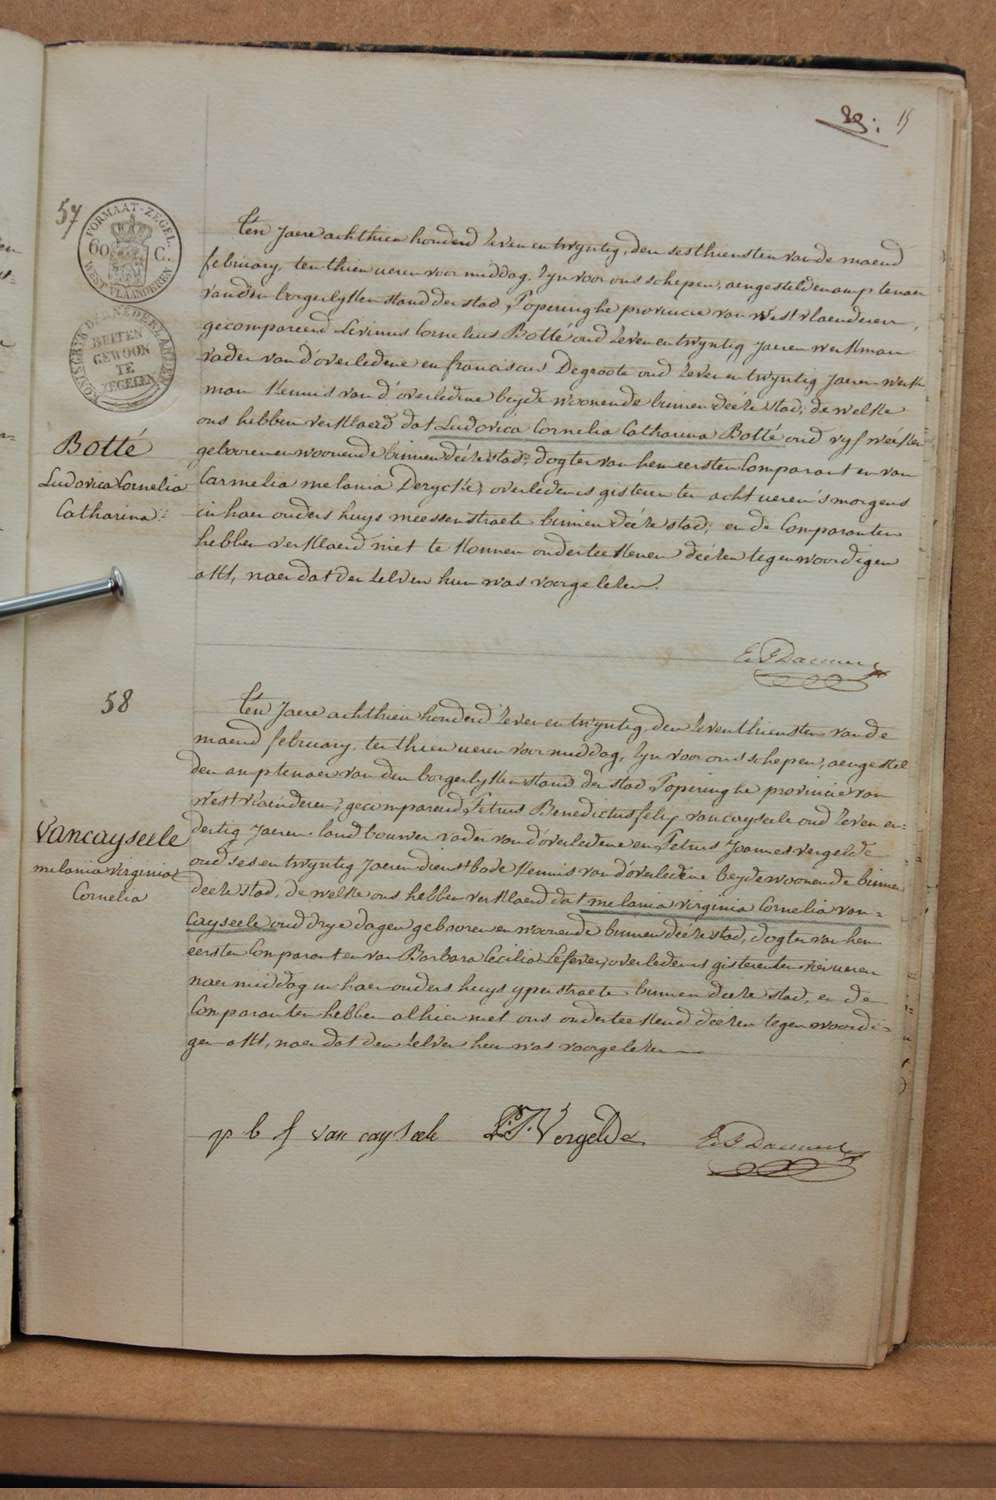 29: 15
57
FORMAAT-ZEGEL.
60 C.
WEST VLAANDEREN
KONINGRYK DER NEDERLANDEN
BUITEN
GEWOON
TE
ZEGELEN
Botté
Ludovica Cornelia
Catharina
Ten Jaere achthien honderd zeven en twyntig, den sesthiensten van de maend
february, ten thien ueren voormiddag. Zyn voor ons schepen, aengestelden amptenaer
van den borgerlyken stand der stad Poperinghe provincie van West vlaenderen,
gecompareerd Livinus Cornelius Botté oud zeven en twyntig Jaeren werkman
vader van d'overledene en franciscus Degroote oud zeven en twyntig Jaeren werk
man Kennis van d'overledene beyde woonende binnen deéze stad; de welke
ons hebben verklaerd dat Ludovica Cornelia Catharina Botté oud vyf weéken
gebooren en woonende binnen deéze stad, dogter van hem eersten Comparant en van
Carmelia melania Derycke, overleden is gisteren ten acht ueren 's morgens
in haer ouders huys meessenstraete binnen deéze stad; en de Comparanten
hebben verklaerd niet te konnen onderteekenen deézen tegenwoordigen
akt, naer dat den zelven hun was voorgelezen.
58
Vancayseele
melania virginia
Cornelia
Ten Jaere achthien honderd zeven en twyntig, den zeventhiensten van de
maend february, ten thien ueren voormiddag, Zyn voor ons schepen, aengestel
den amptenaer van den borgerlyken stand der stad Poperinghe provincie van
West vlaenderen, gecompareerd Petrus Benedictus felix vancayseele oud zeven en-
dertig Jaeren landbouwer vader van d'overledene en Petrus Joannes vergelde
oud ses en twyntig Jaeren dienstbode Kennis van d'overledene beyde woonende binnen
deéze stad, de welke ons hebben verklaerd dat melania virginia Cornelia van-
cayseele oud drye dagen gebooren en woonende binnen deéze stad, dogter van hem
eersten Comparant en van Barbara Cecilia Lefever, overleden is gisteren ten vier ueren
naermiddag in haer ouders huys yperstraete binnen deéze stad, en de
Comparanten hebben alhier met ons onderteekend deézen tegenwoordi-
gen akt, naer dat den zelven hun was voorgelezen
p b f van cayseele P: J: Vergelde